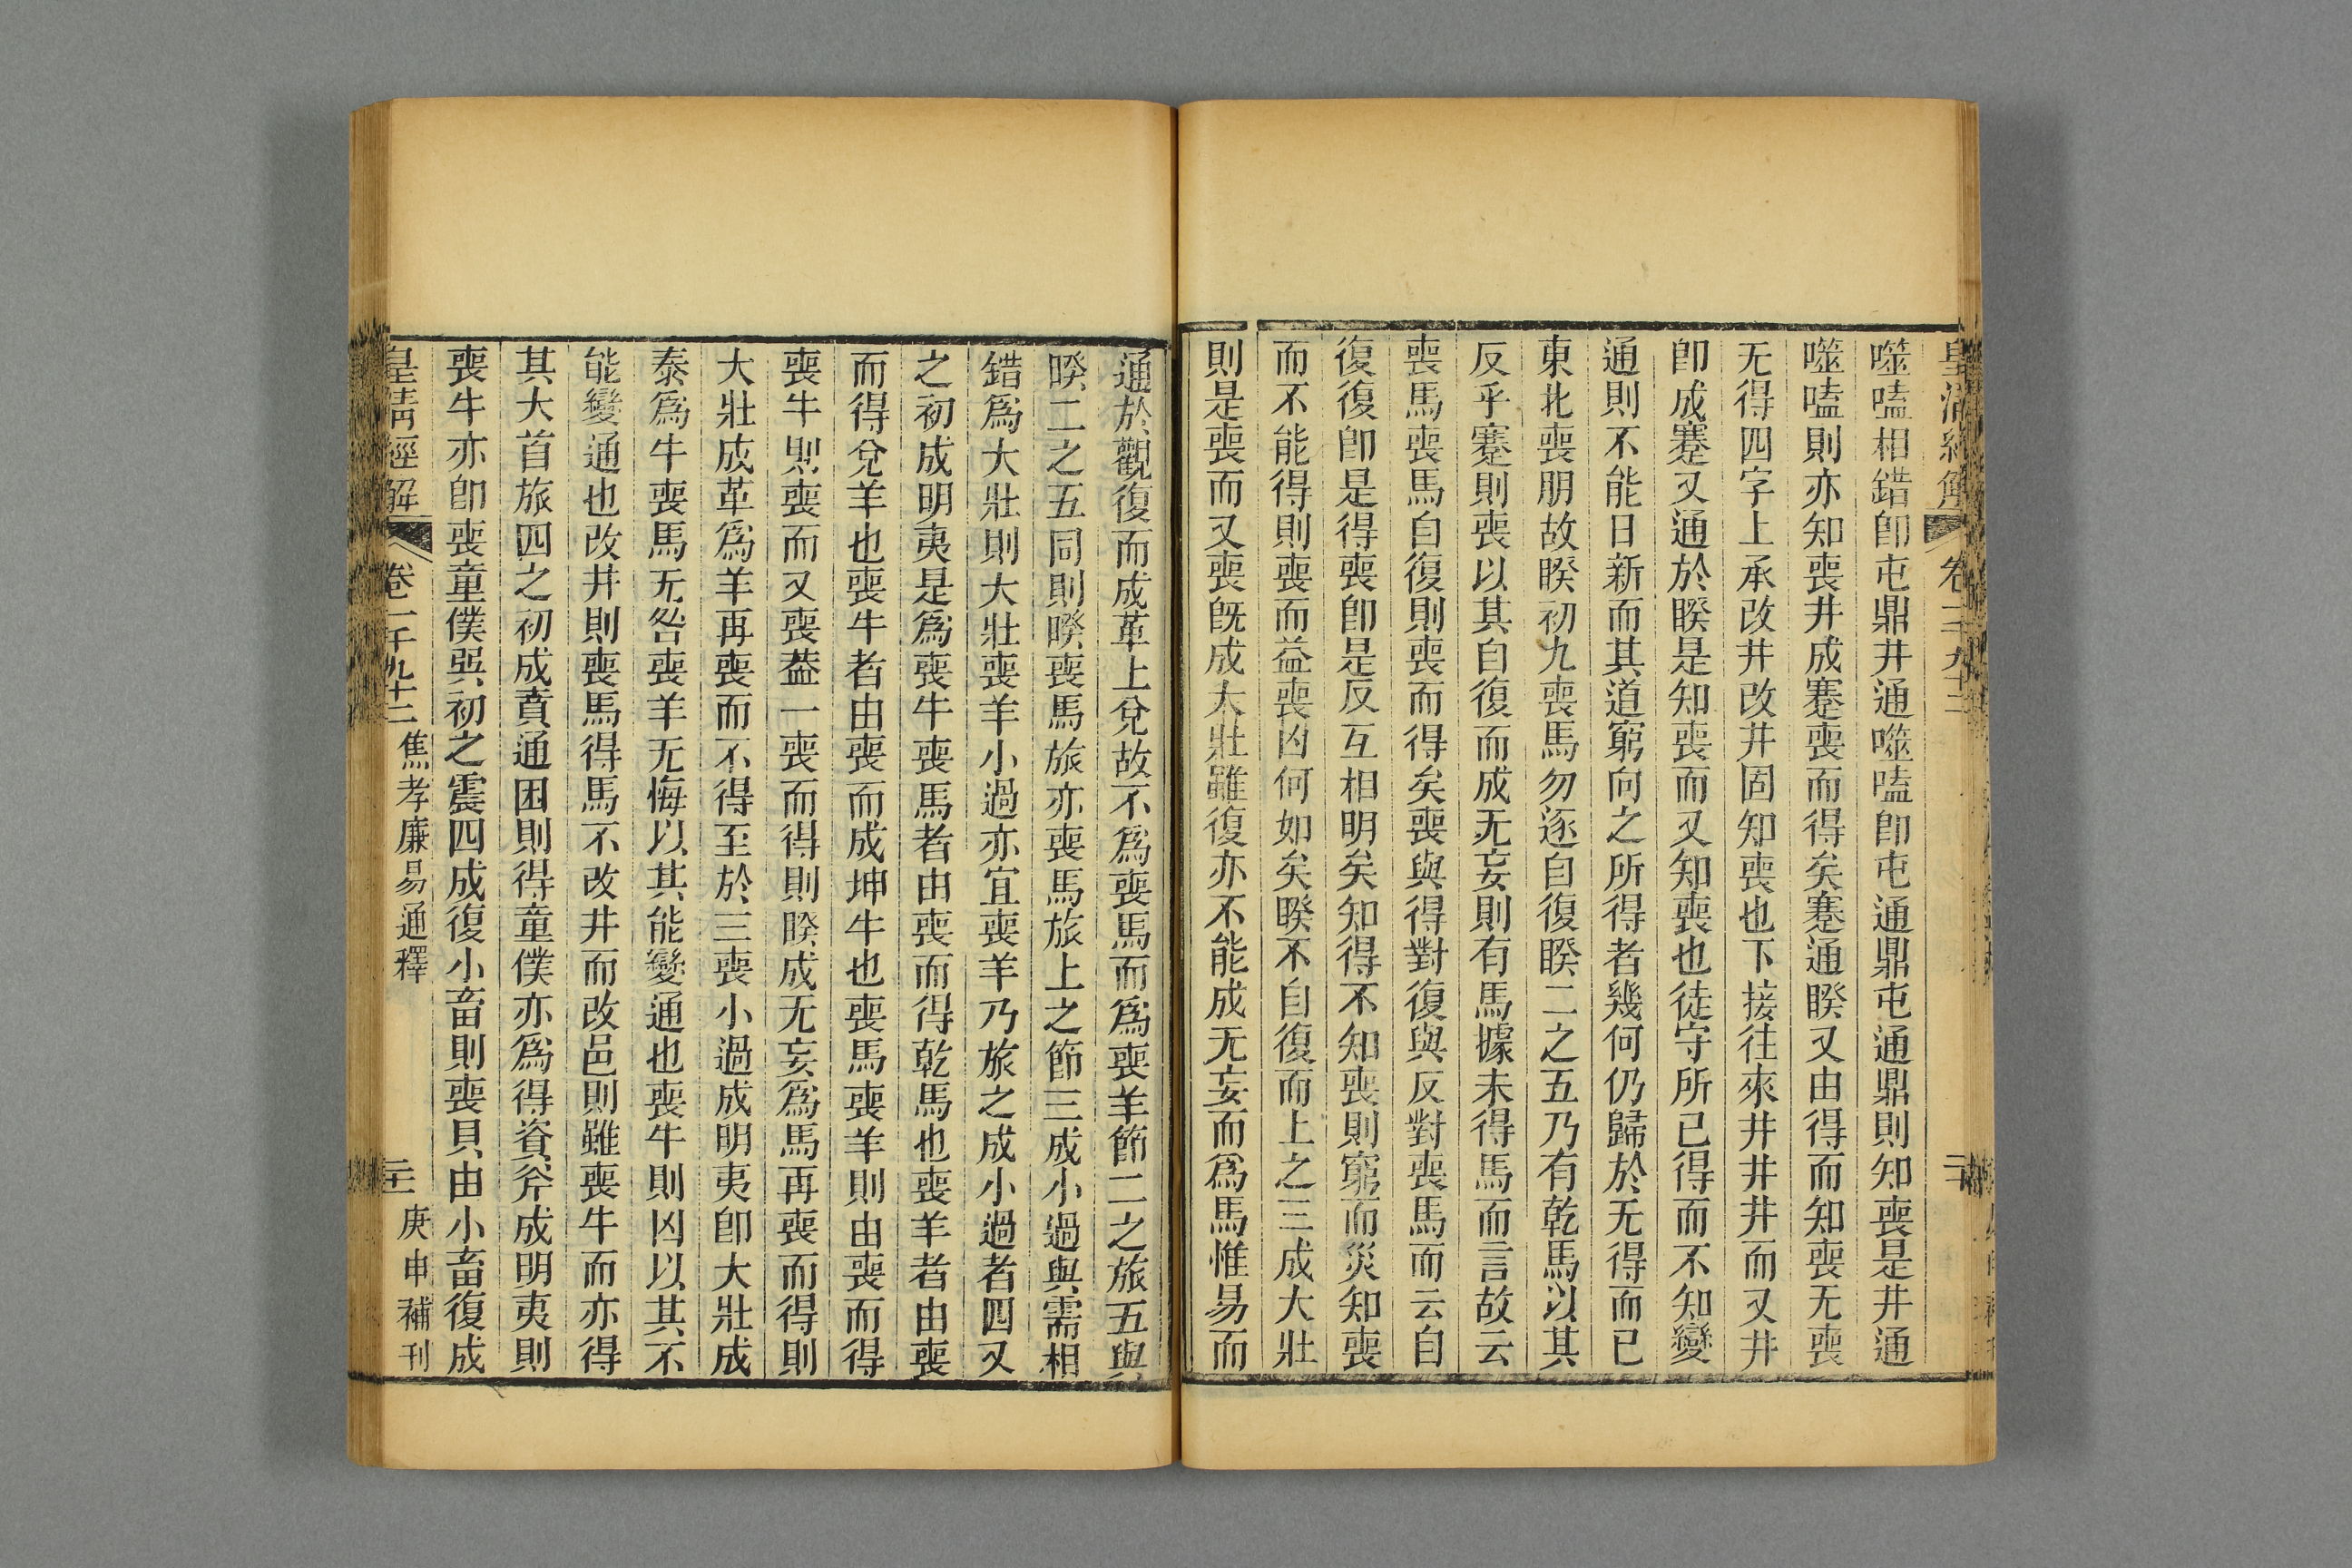 噬嗑相錯卽屯鼎井通噬嗑卽屯通鼎屯通鼎則知喪是井通
噬嗑則亦知喪井成蹇喪而得矣蹇通睽又由得而知喪无喪
无得四字上承改井改井固知喪也下接往來井井井而又井
卽成蹇又通於睽是知喪而又知喪也徒守所已得而不知變
通則不能日新而其道窮向之所得者幾何仍歸於无得而已
東北喪朋故睽初九喪馬勿逐自復睽二之五乃有乾馬以其
反乎蹇則喪以其自復而成无妄則有馬據未得馬而言故云
喪馬喪馬自復則喪而得矣喪與得對復與反對喪馬而云自
復復卽是得喪卽是反互相明矣知得不知喪則窮而災知喪
而不能得則喪而益喪凶何如矣睽不自復而上之三成大壯
則是喪而又喪旣成大壯雖復亦不能成无妄而爲馬惟易而
通於觀復而成革上兌故不爲喪馬而爲喪羊節二之旅五與
睽二之五同則睽喪馬旅亦喪馬旅上之節三成小過與需相
錯爲大壯則大壯喪羊小過亦宜喪羊乃旅之成小過者四又
之初成明夷是爲喪牛喪馬者由喪而得乾馬也喪羊者由喪
而得兌羊也喪牛者由喪而成坤牛也喪馬喪羊則由喪而得
喪牛則喪而又喪葢一喪而得則睽成无妄爲馬再喪而得則
大壯成革爲羊再喪而不得至於三喪小過成明夷卽大壯成
泰爲牛喪馬无咎喪羊无悔以其能變通也喪牛則凶以其不
能變通也改井則喪馬得馬不改井而改邑則雖喪牛而亦得
其大首旅四之初成賁通困則得童僕亦爲得資斧成明夷則
喪牛亦卽喪童僕巽初之震四成復小畜則喪貝由小畜復成
皇清經解 卷一千九十二 焦孝廉易通釋 二十一 庚申補刊